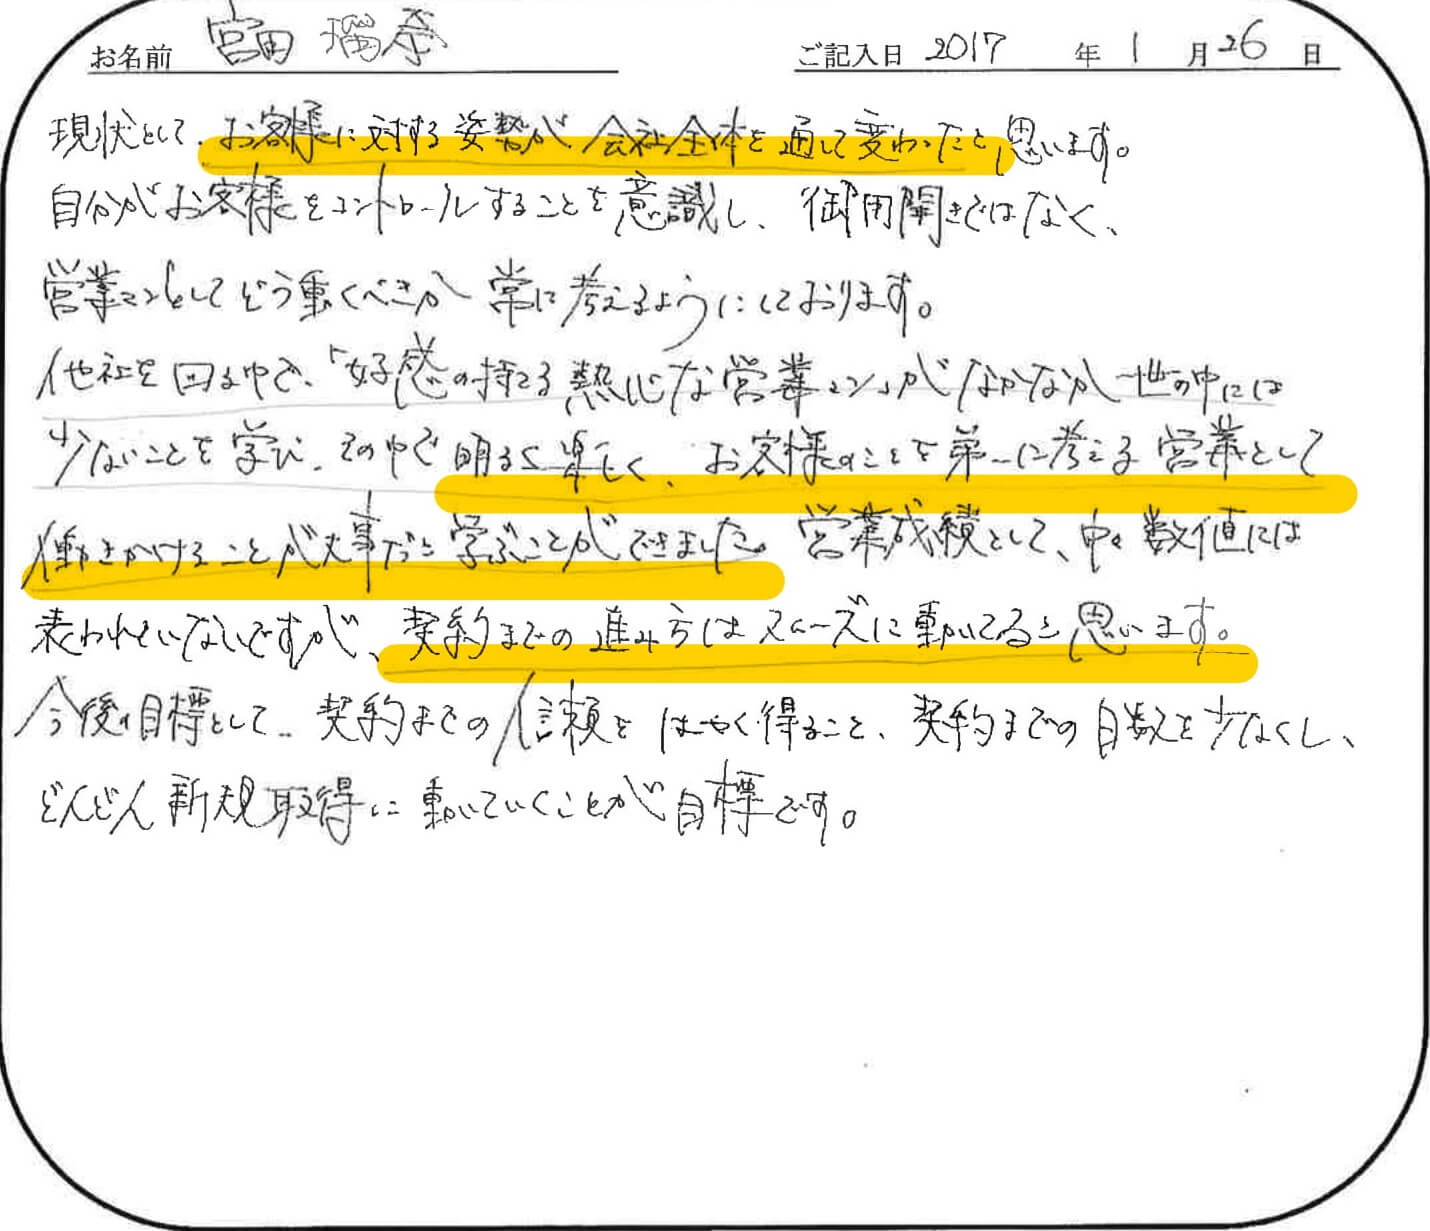 お名前 宮田 瑠奈 ご記入日 2017 年 1 月 26 日
現状として、お客様に対する姿勢が会社全体を通して変わったと思います。
自分がお客様をコントロールすることを意識し、御用聞きではなく、
営業マンとしてどう動くべきか常に考えるようにしております。
他社を回る中で、「好感の持てる熱心な営業マン」がなかなか世の中には
少ないことを学び、その中で明るく楽しく、お客様のことを第一に考える営業として
働きかけることが大事だと学ぶことができました。営業成績として、中々数値には
表われていないですが、契約までの進み方はスムーズに動いてると思います。
今後の目標として、契約までの信頼をはやく得ること、契約までの日数を少なくし、
どんどん新規取得に動いていくことが目標です。